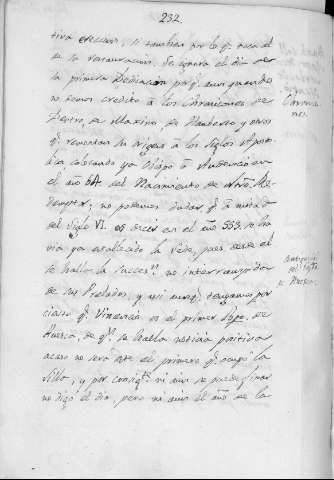 232.
tiva ereccion, si tambien por lo q.e toca al
de la restauracion. Se ignora el dia de
la primera Dedicacion porq.e aun quando
no demos credito à los Chronicones de
Dextro de Maximo, de Hauberto y otros
q.e remontan su origen à los Siglos Apost
colocando ya Obispo à
el año 64. del Nacimiento de Ntro. Re-
demptor; no podemos dudar q.e à mitad
del Siglo VI. es decir en el año 553. se ha-
via ya establecido la Sede, pues desde el
se halla la succes.n no interrumpida
de sus Prelados, y asi aunq.e tengamos por
cierto q.e Vincencio es el primer Obpo. de
Huesca, de q.n se halla noticia positiva
acaso no sera este el primero q.e ocupò la
Silla, y por consig.te ni aun se puede fixar
no digo el dia, pero ni aun el año de la
Chronico-
nes.
Antiguedad
del Obpdo.
de Huesca.